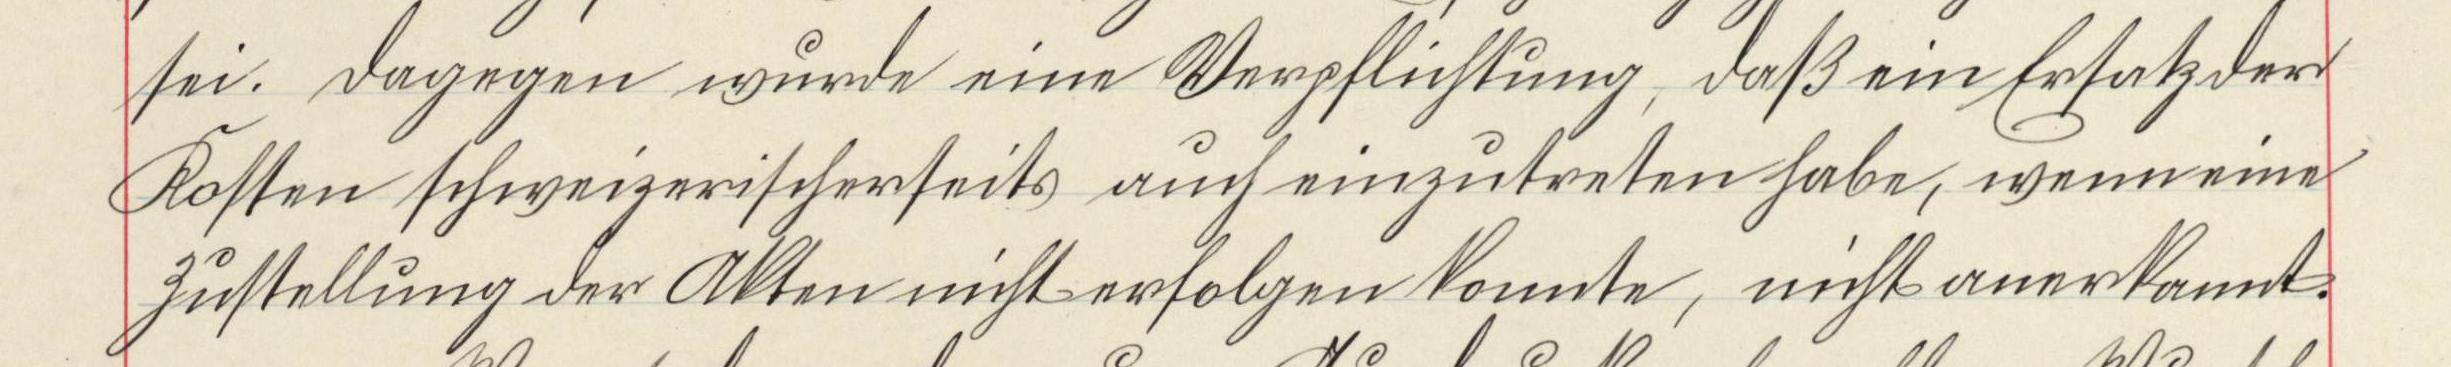 sei. Dagegen wurde eine Verpflichtung, daß ein Ersatz der
Kosten schweizerischerseits auch einzutreten habe, wenn eine
Zustellung der Akten nicht erfolgen konnte, nicht anerkannt.